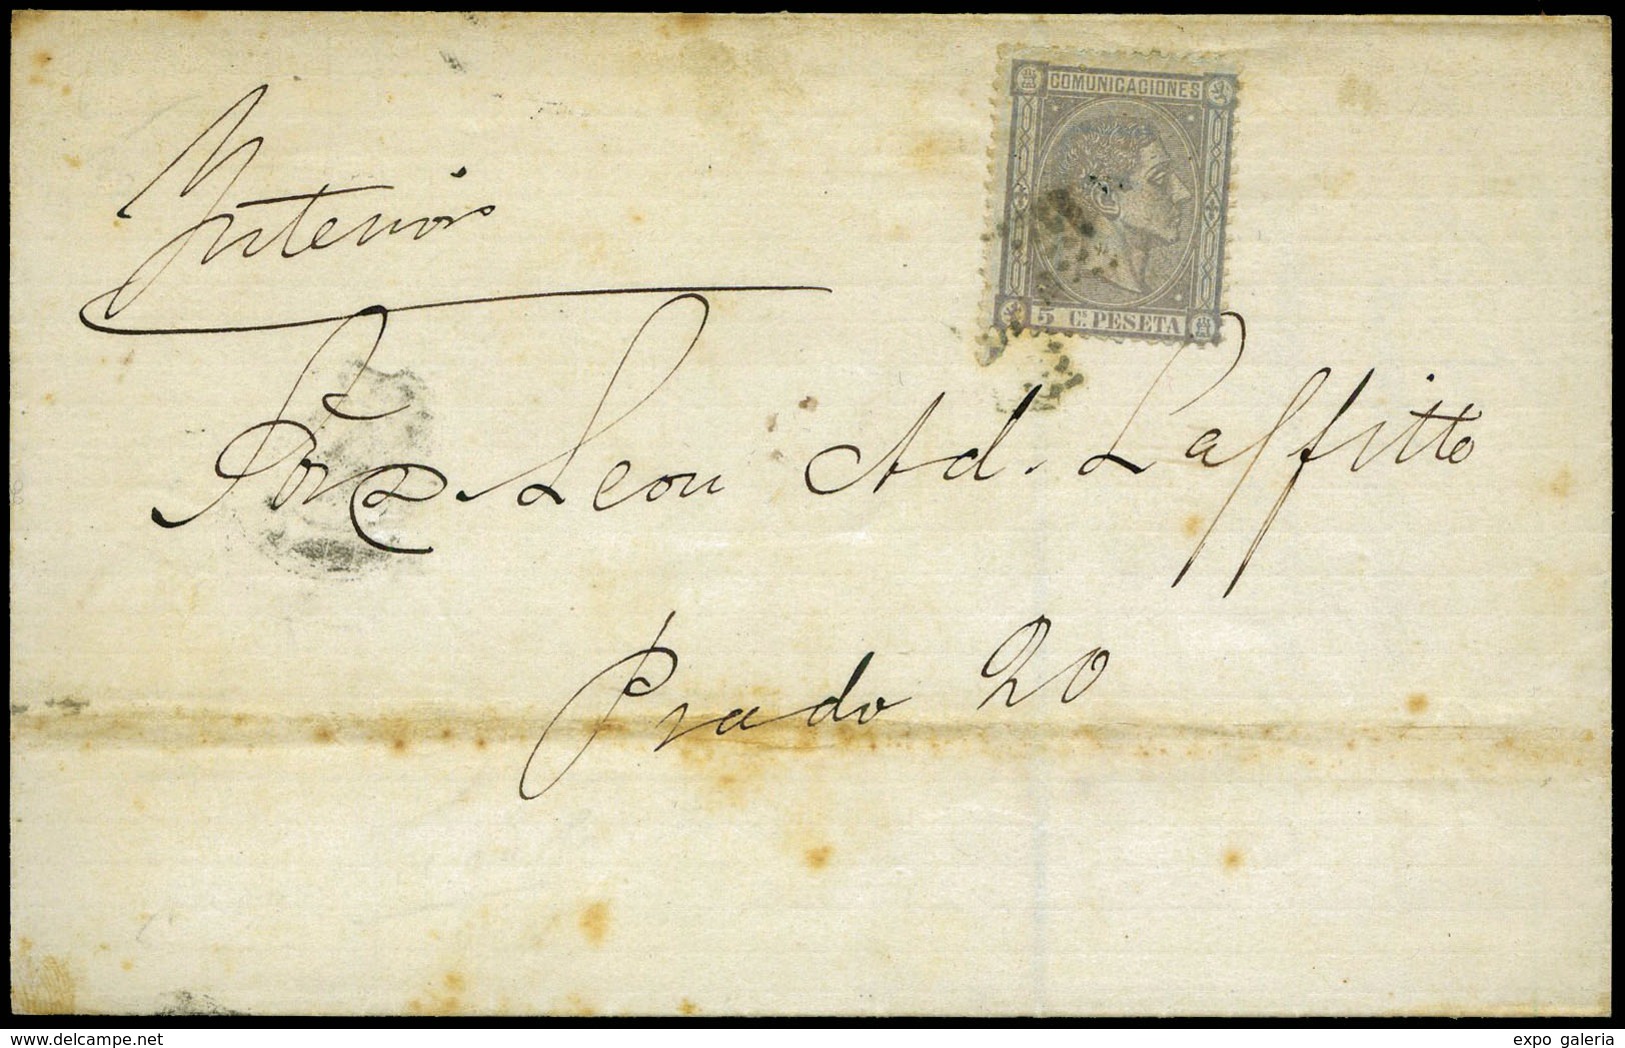 Interior
COMUNICACIONES
5 Cs PESETA
Leon Ad. Laffitte
Prado 20
delcampe.net
expo galeria